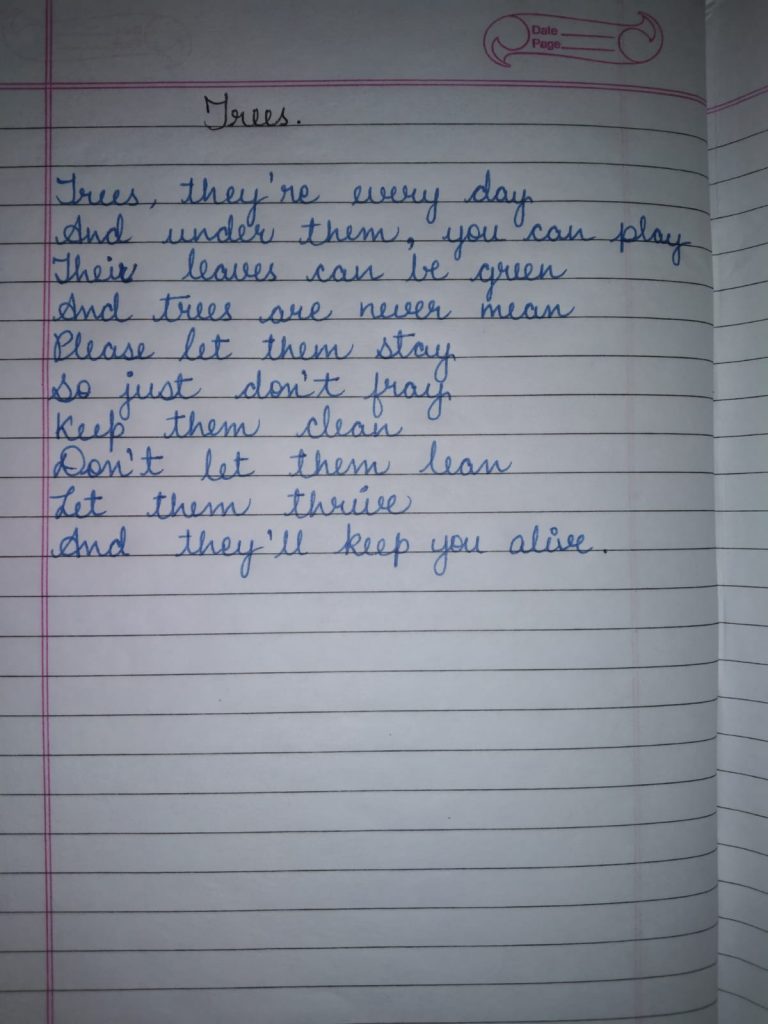 Date
Page
Trees.
Trees, they're every day
And under them, you can play
Their leaves can be green
And trees are never mean
Please let them stay
So just don't fray
Keep them clean
Don't let them lean
Let them thrive
And they'll keep you alive.